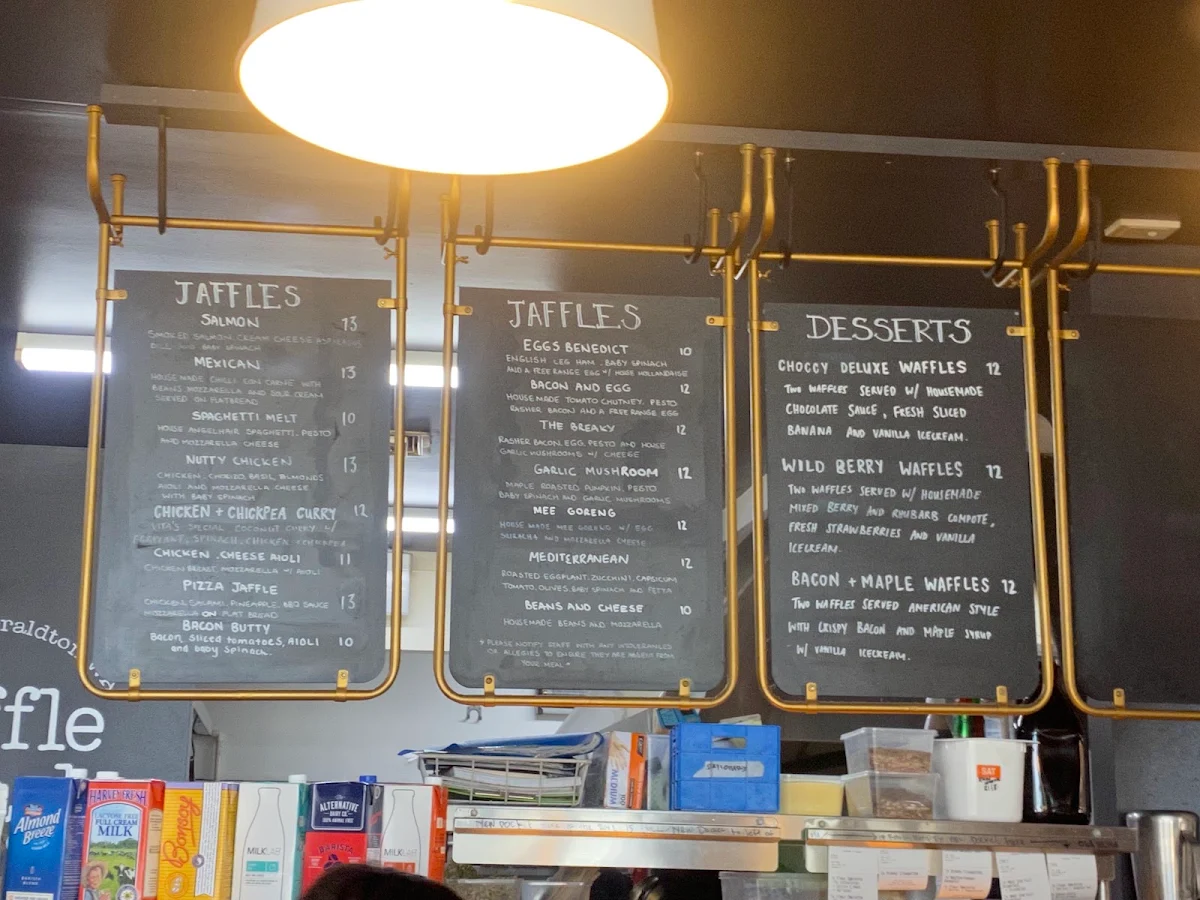 JAFFLES
SALMON 13
SMOKED SALMON, CREAM CHEESE ASPARAGUS
DILL AND BABY SPINACH
MEXICAN 13
HOUSE MADE CHILLI CON CARNE WITH
BEANS MOZZARELLA AND SOUR CREAM
SERVED ON FLATBREAD
SPAGHETTI MELT 10
HOUSE ANGELHAIR SPAGHETTI, PESTO
AND MOZZARELLA CHEESE
NUTTY CHICKEN 13
CHICKEN, CHORIZO, BASIL, ALMONDS
AIOLI AND MOZZARELLA CHEESE
WITH BABY SPINACH
CHICKEN + CHICKPEA CURRY 12
VITA'S SPECIAL COCONUT CURRY W/
EGGPLANT, SPINACH, CHICKEN + CHICKPEA
CHICKEN, CHEESE AIOLI 11
CHICKEN BREAST, MOZZARELLA W/ AIOLI
PIZZA JAFFLE 13
CHICKEN, SALAMI, PINEAPPLE, BBQ SAUCE
MOZZARELLA ON FLAT BREAD
BACON BUTTY
Bacon, sliced tomatoes, AIOLI 10
and baby spinach.
JAFFLES
EGGS BENEDICT 10
ENGLISH LEG HAM, BABY SPINACH
AND A FREE RANGE EGG W/ HOUSE HOLLANDAISE
BACON AND EGG 12
HOUSE MADE TOMATO CHUTNEY, PESTO
RASHER BACON AND A FREE RANGE EGG
THE BREAKY 12
RASHER BACON, EGG, PESTO AND HOUSE
GARLIC MUSHROOMS W/ CHEESE
GARLIC MUSHROOM 12
MAPLE ROASTED PUMPKIN, PESTO,
BABY SPINACH AND GARLIC MUSHROOMS
MEE GORENG
HOUSE MADE MEE GORENG W/ EGG 12
SRIRACHA AND MOZZARELLA CHEESE
MEDITERRANEAN 12
ROASTED EGGPLANT, ZUCCHINI, CAPSICUM
TOMATO, OLIVES, BABY SPINACH AND FETTA
BEANS AND CHEESE 10
HOMEMADE BEANS AND MOZZARELLA
* PLEASE NOTIFY STAFF WITH ANY INTOLERANCES
OR ALLERGIES TO ENSURE THEY ARE ABSENT FROM
YOUR MEAL *
DESSERTS
CHOCCY DELUXE WAFFLES 12
TWO WAFFLES SERVED W/ HOUSEMADE
CHOCOLATE SAUCE, FRESH SLICED
BANANA AND VANILLA ICECREAM.
WILD BERRY WAFFLES 12
TWO WAFFLES SERVED W/ HOUSEMADE
MIXED BERRY AND RHUBARB COMPOTE,
FRESH STRAWBERRIES AND VANILLA
ICECREAM.
BACON + MAPLE WAFFLES 12
TWO WAFFLES SERVED AMERICAN STYLE
WITH CRISPY BACON AND MAPLE SYRUP
W/ VANILLA ICECREAM.
raldton
ffle
Almond
Breeze
HARVEY FRESH
LACTOSE FREE
FULL CREAM
MILK
Bonsoy
MILKLAB
ALTERNATIVE
DAIRY CO.
BARISTA
MILKLAB